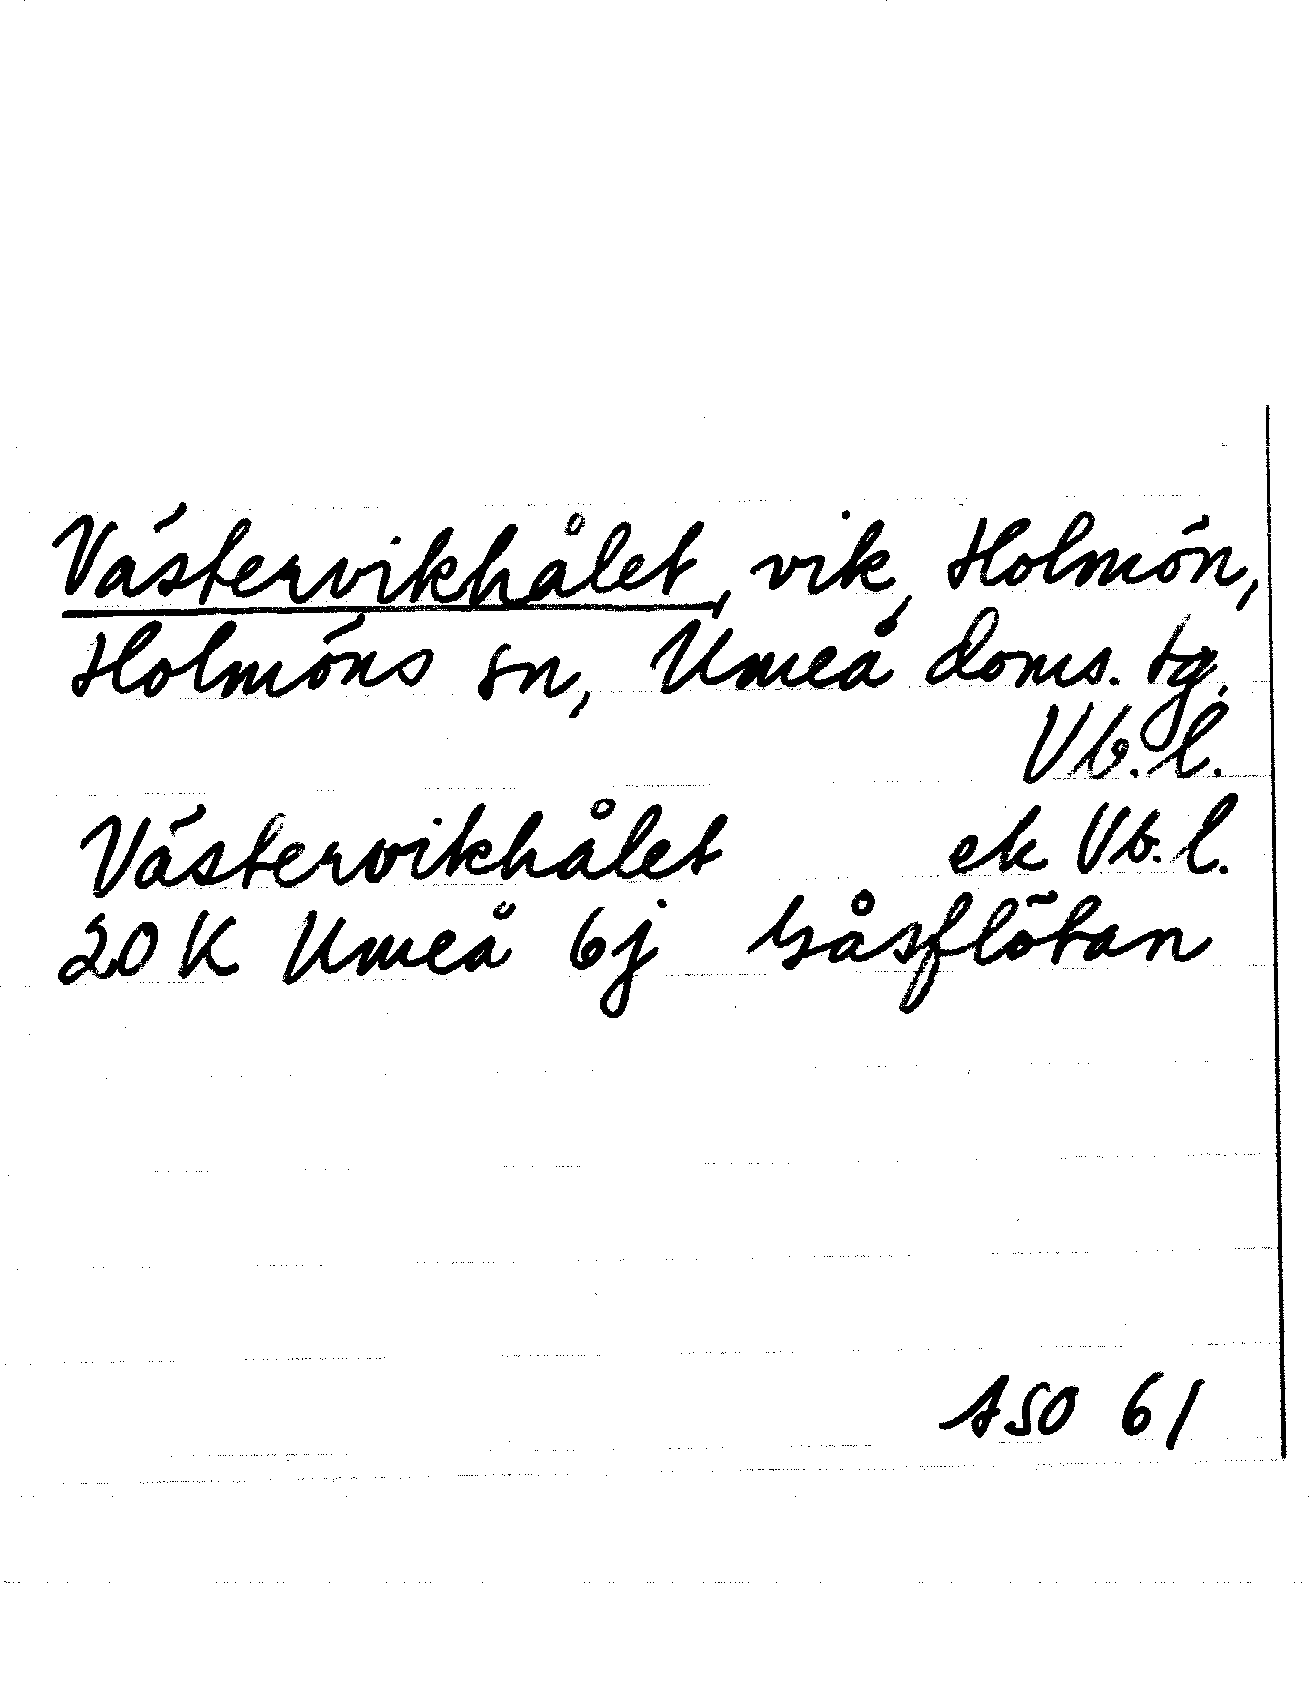 Västervikhålet, vik, Holmön,
Holmöns sn, Umeå doms. tg,
Vb. l.
Västervikhålet ek Vb. l.
20 K Umeå 6j Gåsflötan
ASO 61